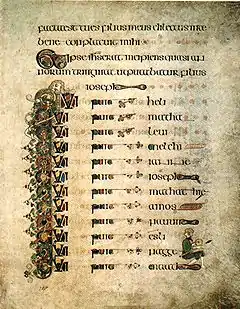 factus est tu es filius meus dilectus in te
bene conplacuit mihi
Et ipse ihs erat incipiens quasi an
norum triginta ut putabatur filius
ioseph
QVI fuit heli
QVI fuit matha
QVI fuit leui
QVI fuit melchi
QVI fuit
QVI fuit ioseph
QVI fuit mathathie
QVI fuit amos
QVI fuit nauum
QVI fuit esli
QVI fuit nagge
QVI fuit maath